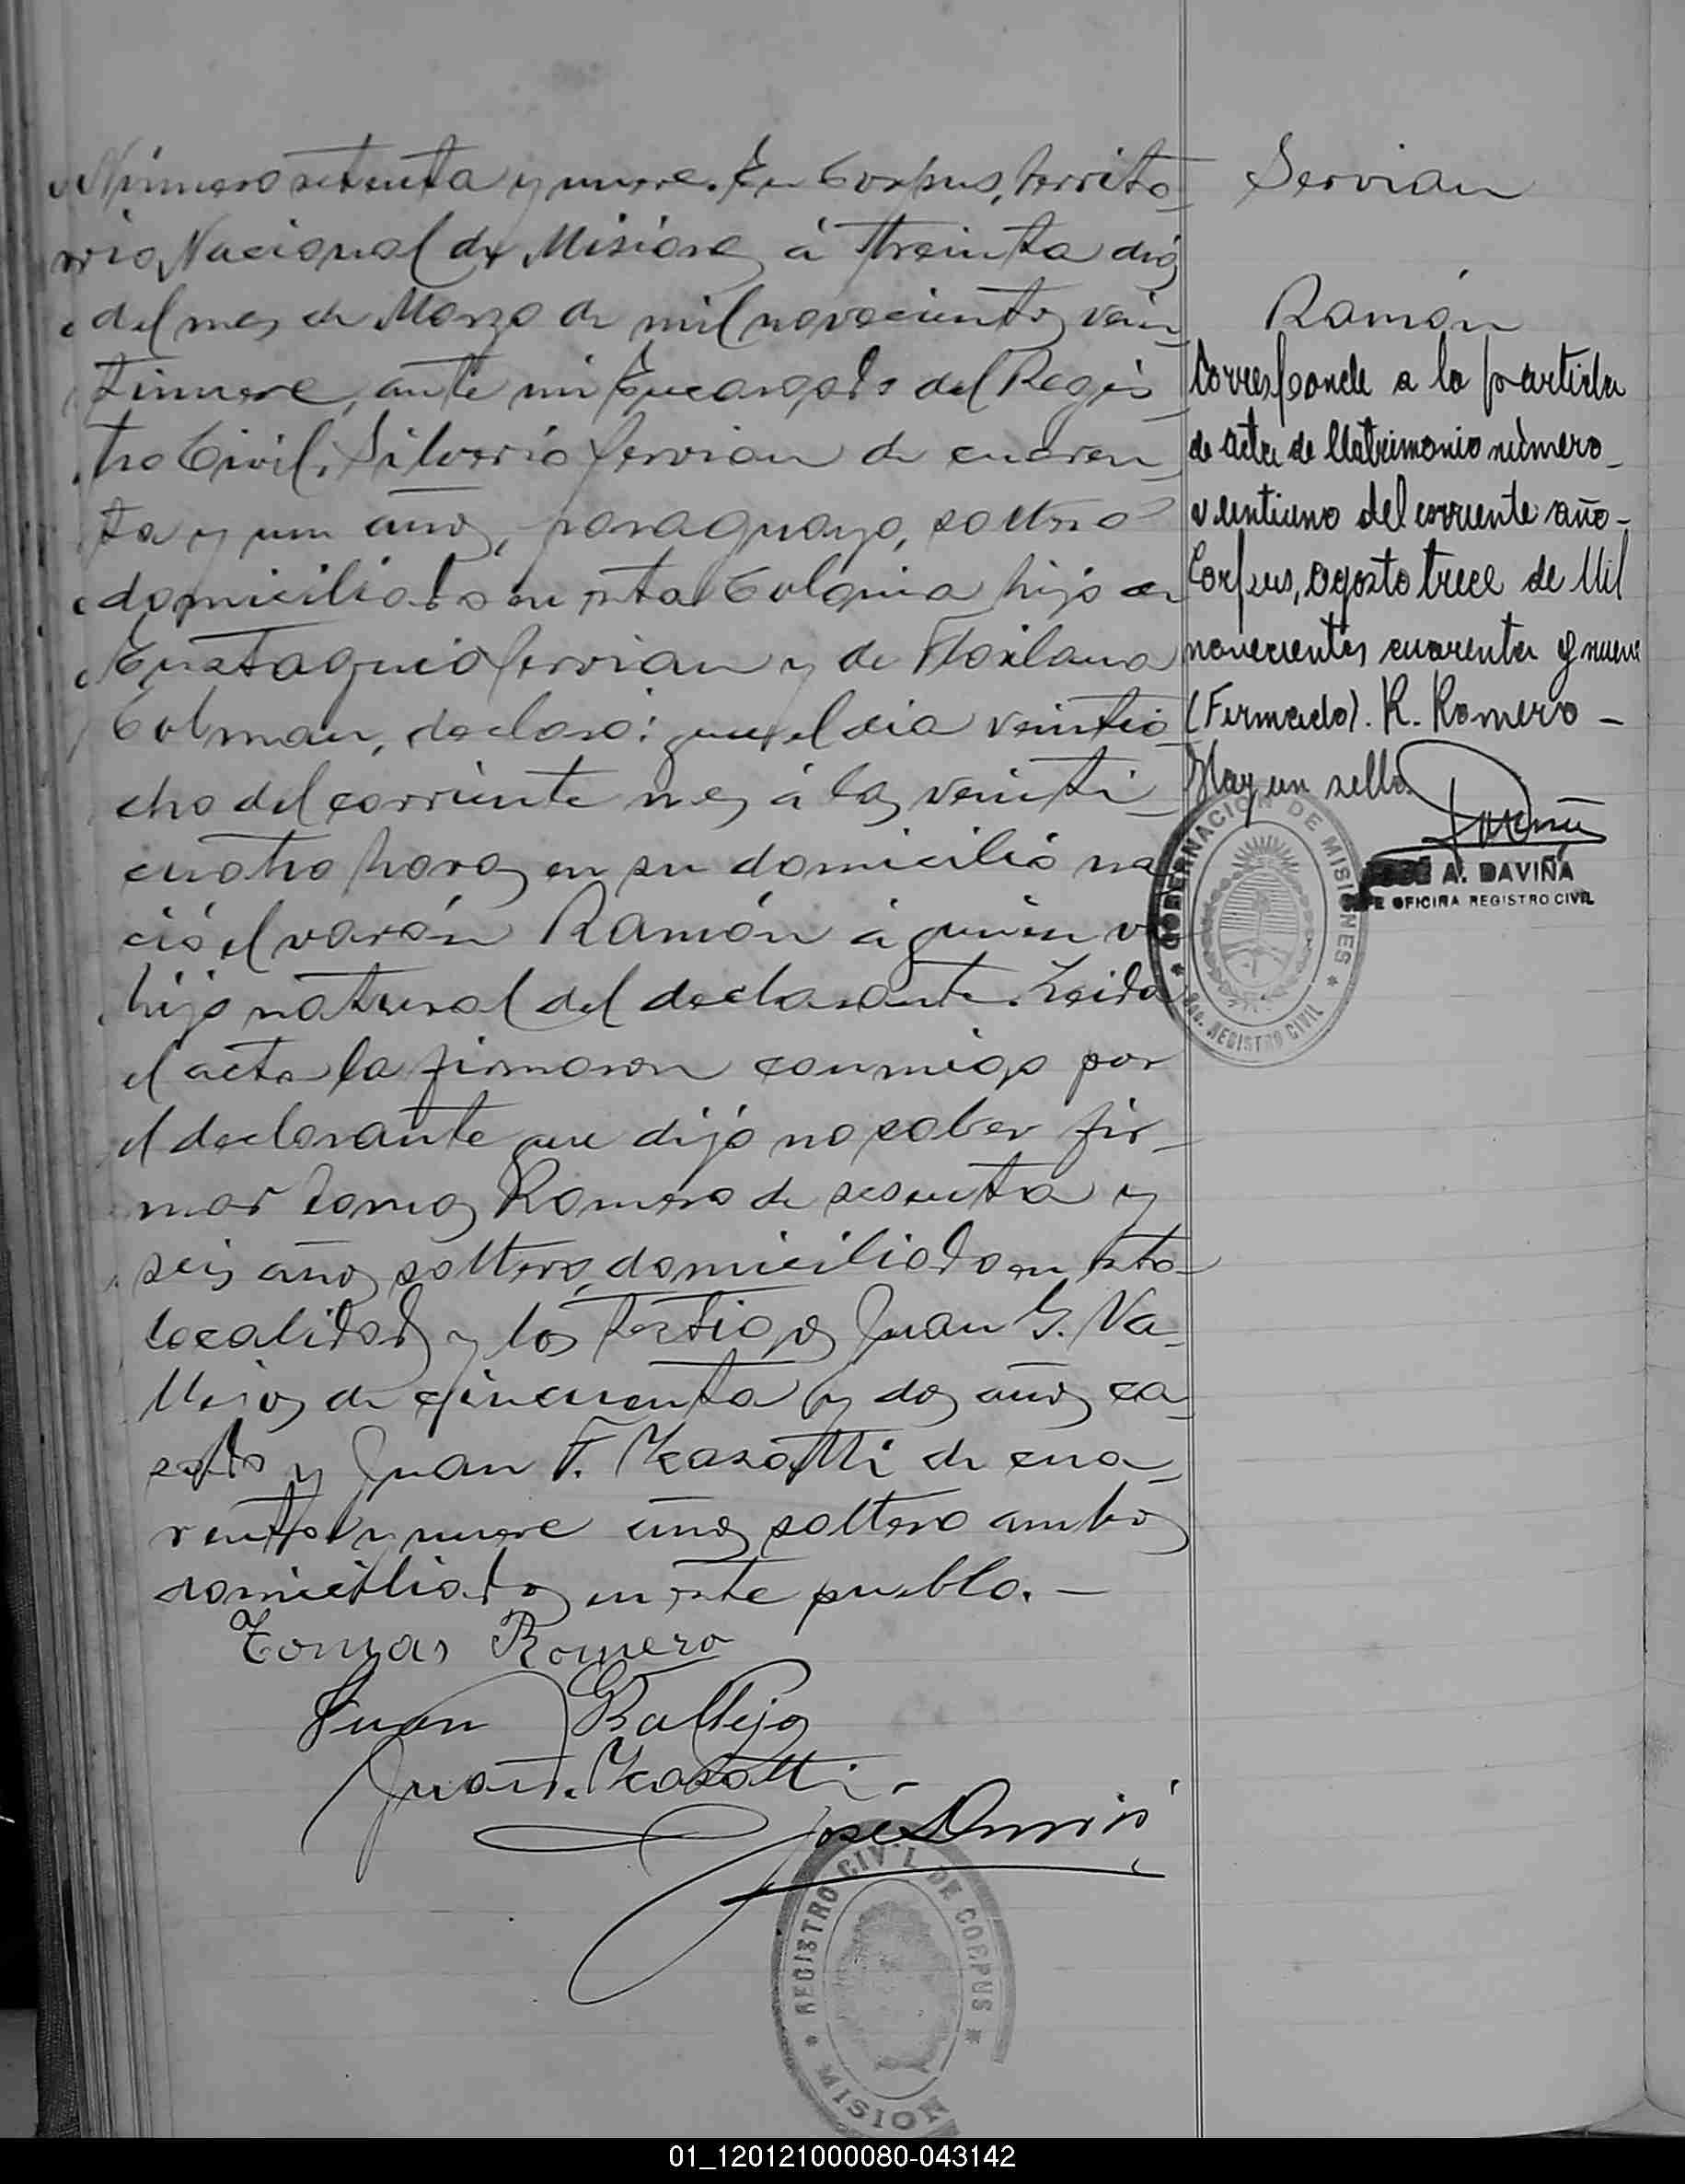 Número setenta y nueve. En Corpus, territo-
rio Nacional de Misiones á treinta dias
del mes de Marzo de mil novecientos vein-
tinueve, ante mi Encargado del Regis-
tro Civil, Silverio Servian de cuaren-
ta y un años, paraguayo, soltero
domiciliado en esta Colonia hijo de
Eustaquio Servian y de
Colman, declaró: que el dia veintio-
cho del corriente mes á las veinti-
cuatro horas en su domicilio na-
ció el varón Ramón á quien vi
hijo natural del declarante. Leida
el acta la firmaron conmigo por
el declarante que dijó no saber fir-
mar Tomas Romero de sesenta y
seis años soltero, domiciliado en esta
localidad y los testigos Juan G. Va-
llejos de cincuenta y dos años ca-
sado y Juan F. de cua-
renta y nueve años soltero ambos
domiciliados en este pueblo. —
Tomas Romero
Juan G Vallejos
Juan F.
José Daviña
REGISTRO CIVIL DE CORPUS
* MISION
Servian
Ramón
Corresponde a la partida
de acta de Matrimonio número
veintiuno del corriente año-
Corpus, agosto trece de Mil
novecientos cuarenta y nueve
(Firmado). R. Romero -
Hay un sello.
GOBERNACION DE MISIONES
* REGISTRO CIVIL *
A. DAVIÑA
JEFE OFICINA REGISTRO CIVIL
01_120121000080-043142